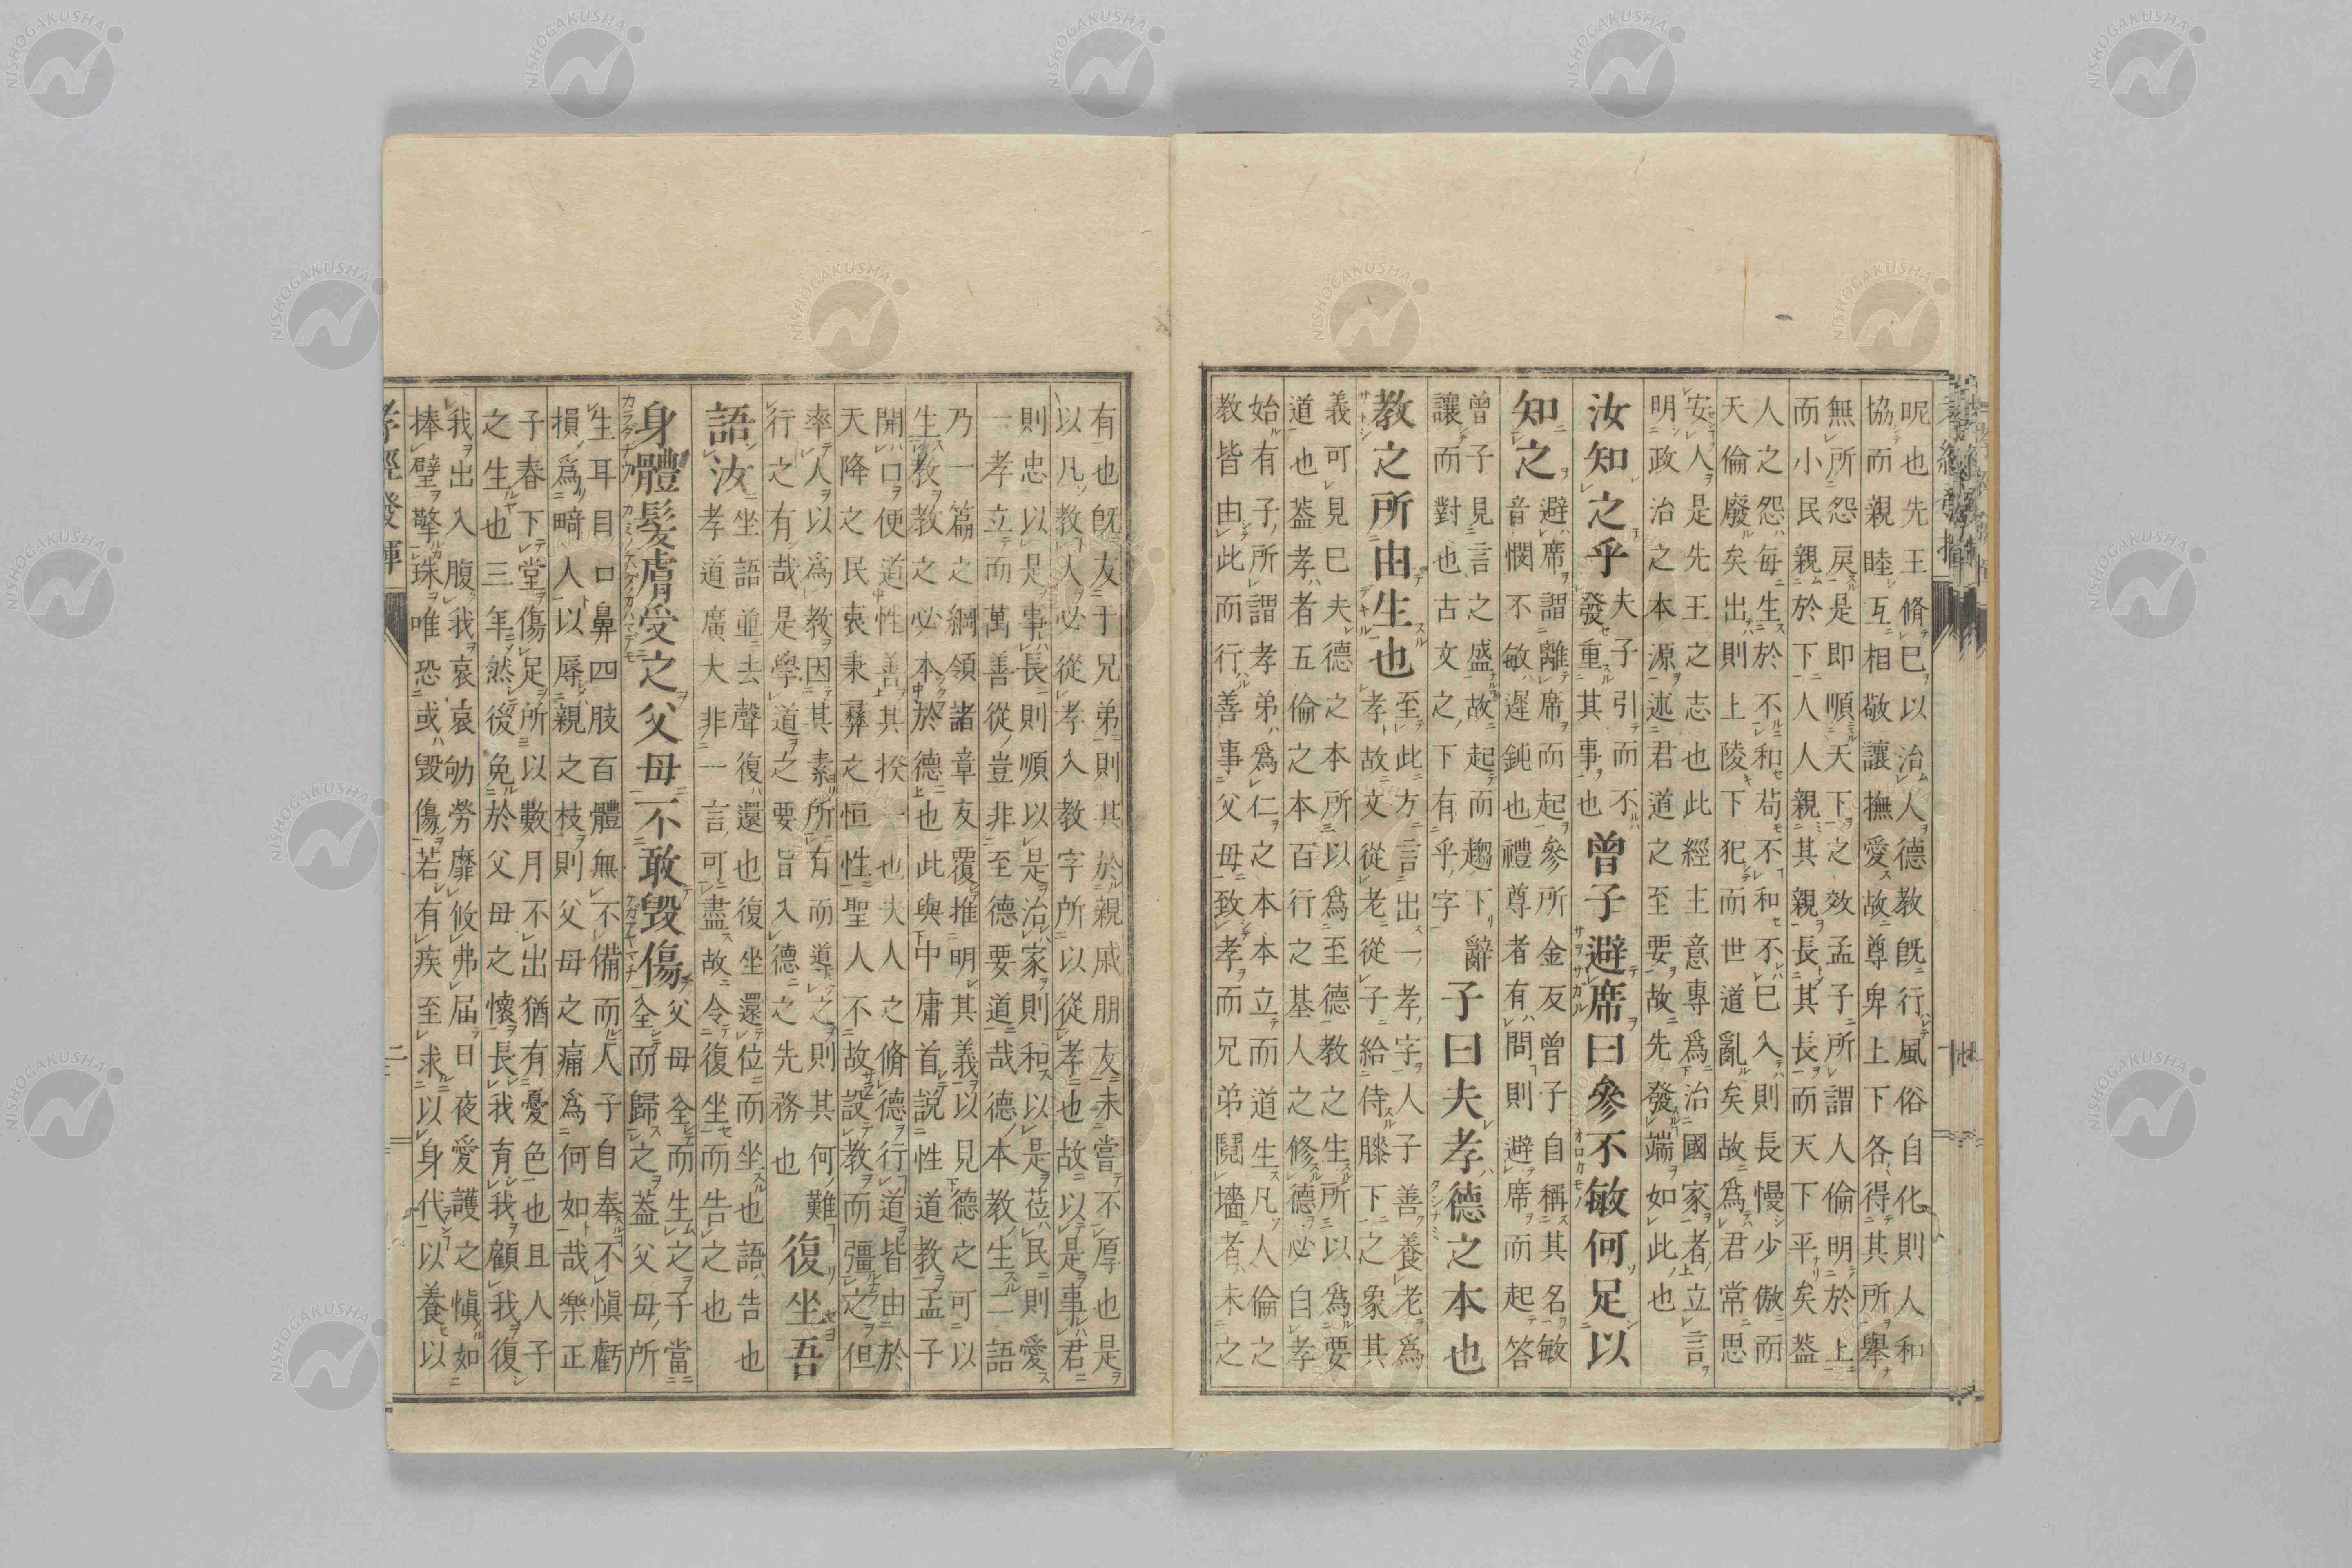 呢也先王脩已以治人德教旣行風俗自化則人和
協而親睦互相敬讓撫愛故尊卑上下各得其所擧
無所怨戾是即順天下之效孟子所謂人倫明於上
而小民親於下人人親其親長其長而天下平矣蓋
人之怨每生於不和苟不和不已入則長慢少傲而
天倫廢矣出則上陵下犯而世道亂矣故爲君常思
安人是先王之志也此經主意專爲治國家者立言
明政治之本源述君道之至要故先發端如此也
汝知之乎
夫子引而不
發重其事也
曾子避席曰參不敏何足以
知之
避席謂離席而起參所金友曾子自稱其名敏
音憫不敏遲鈍也禮尊者有問則避席而起答
曾子見言之盛故起而趨下辭
讓而對也古文之下有乎字
子曰夫孝德之本也
教之所由生也
至此方言出一孝字人子善養老爲
孝故文從老從子給侍膝下之象其
義可見已夫德之本所以爲至德教之生所以爲要
道也蓋孝者五倫之本百行之基人之修德必自孝
始有子所謂孝弟爲仁之本本立而道生凡人倫之
教皆由此而行善事父母致孝而兄弟鬩墻者未之
有也旣友于兄弟則其於親戚朋友未嘗不厚也是
以凡教人必從孝入教字所以從孝也故以是事君
則忠以是事長則順以是治家則和以是莅民則愛
一孝立而萬善從豈非至德要道哉德本教生一語
乃一篇之綱領諸章友覆推明其義以見德之可以
生教教之必本於德也此與中庸首説性道教孟子
開口便道性善其揆一也夫人之脩德行道皆由於
天降之民衷秉彝之恒性聖人不故設教而彊之但
率人以爲教因其素所有而導之則其何難
行之有哉是學道之要旨入德之先務也
復坐吾
語汝
坐語並去聲復還也復坐還位而坐也語告也
孝道廣大非一言可盡故令復坐而告之也
身體髮膚受之父母不敢毀傷
父母全而生之子當
全而歸之蓋父母所
生耳目口鼻四肢百體無不備而人子自奉不愼虧
損爲畸人以辱親之枝則父母之痛爲何如哉樂正
子春下堂傷足所以數月不出猶有憂色也且人子
之生也三年然後免於父母之懷長我育我顧我復
我出入腹我哀哀劬勞靡攸弗屆日夜愛護之愼如
捧璧擎珠唯恐或毀傷若有疾至求以身代以養以
孝經發揮
二